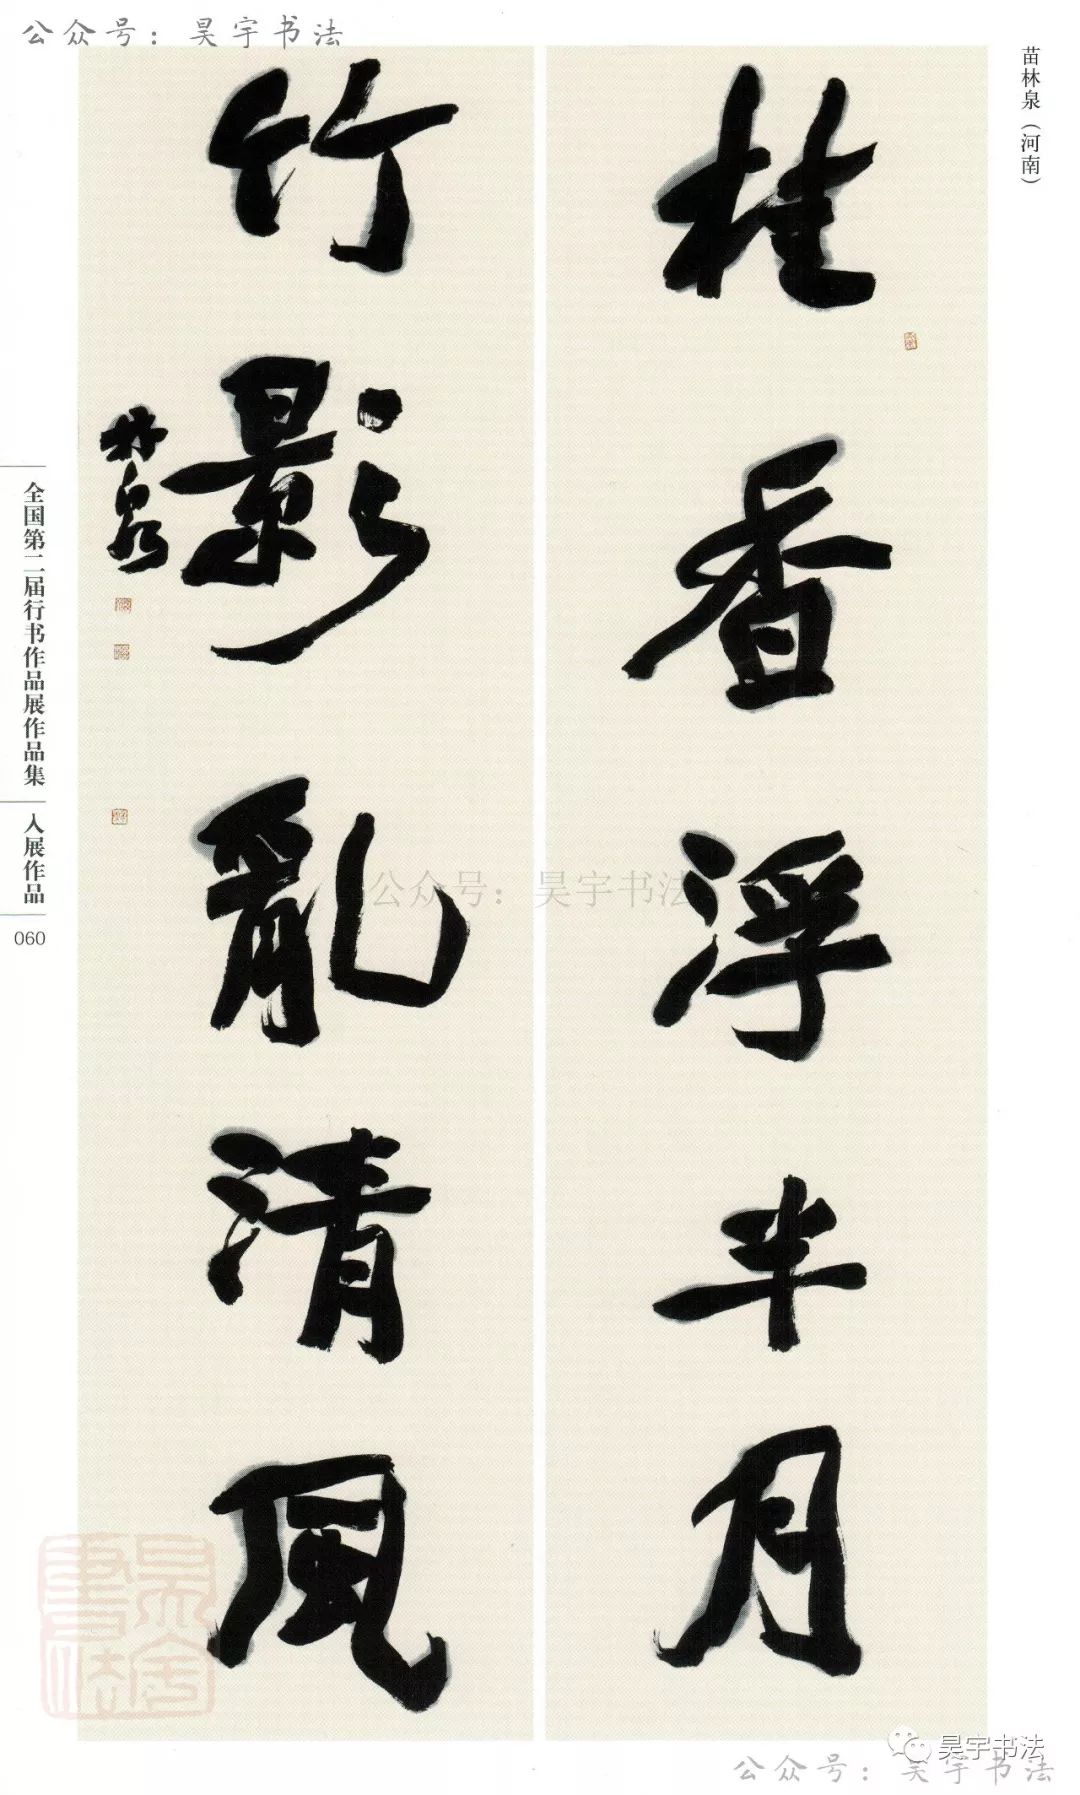 公众号：昊宇书法
苗林泉（河南）
桂香浮半月
竹影亂清風
林泉
全国第二届行书作品展作品集
入展作品
060
公众号：昊宇书法
昊宇書法
昊宇书法
公众号：昊宇书法